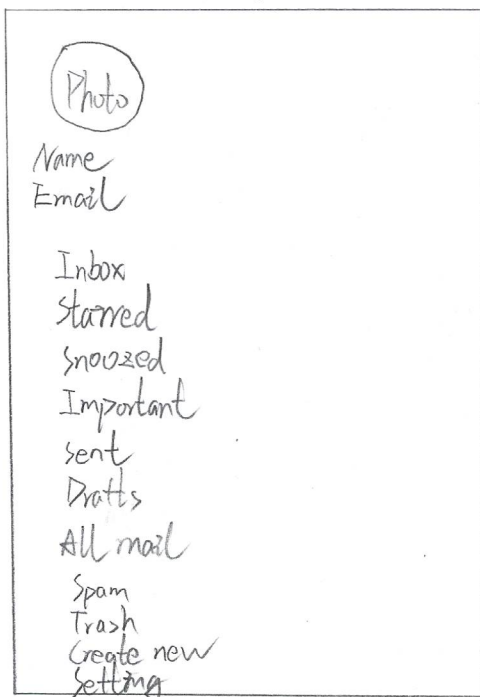 Photo
Name
Email
Inbox
Starred
Snoozed
Important
Sent
Drafts
All mail
Spam
Trash
Create new
Setting